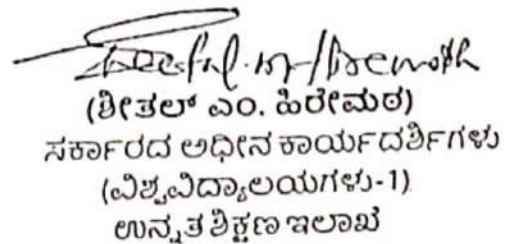 (ಶೀತಲ್ ಎಂ. ಹಿರೇಮಠ)
ಸರ್ಕಾರದ ಅಧೀನ ಕಾರ್ಯದರ್ಶಿಗಳು
(ವಿಶ್ವವಿದ್ಯಾಲಯಗಳು-1)
ಉನ್ನತ ಶಿಕ್ಷಣ ಇಲಾಖೆ